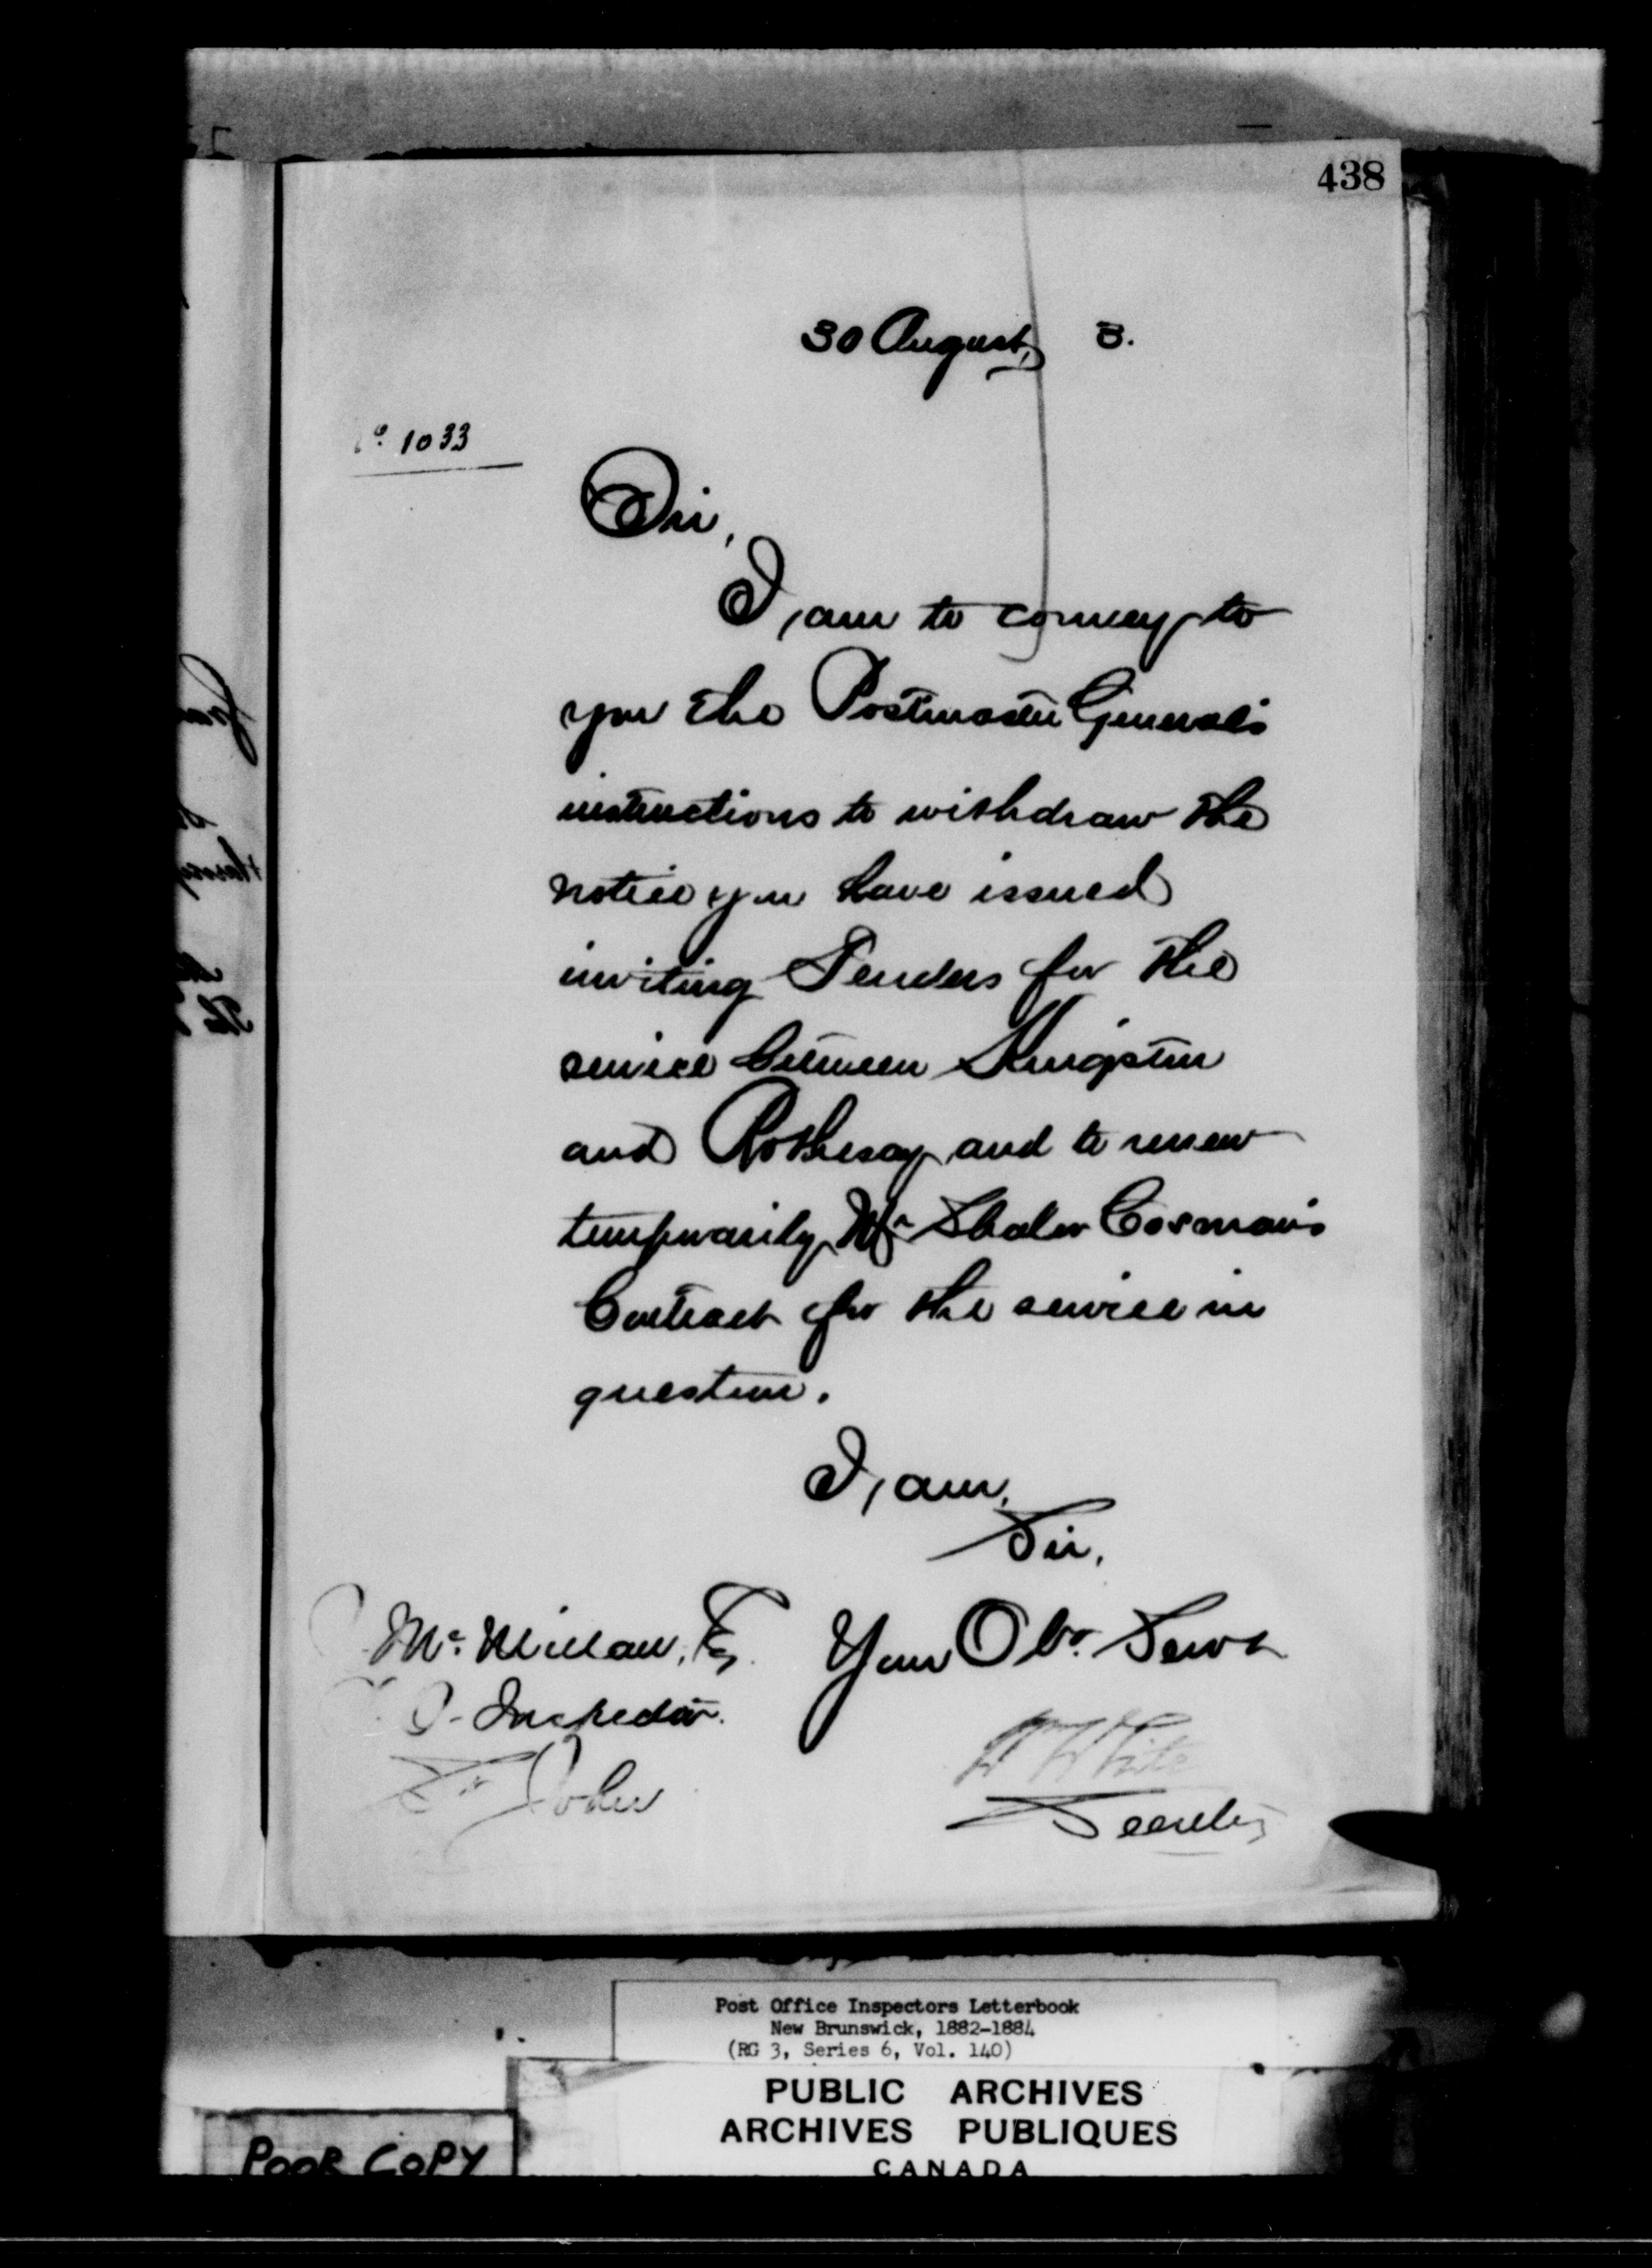 438
30 August, 3.
o. 1033
Sir,
I am to convey to
you the Postmaster General's
instructions to withdraw the
notice you have issued
inviting Tenders for the
service between Kingston
and Rothesay and to renew
temporarily Mr Shaler Cosman's
Contract for the service in
question.
I am,
Sir,
McMillan, Esq. Your Obt. Servt
O. Inspector.
St. John
W White
Secretary
Post Office Inspectors Letterbook
New Brunswick, 1882-1884
(RG 3, Series 6, Vol. 140)
PUBLIC ARCHIVES
ARCHIVES PUBLIQUES
CANADA
POOR COPY